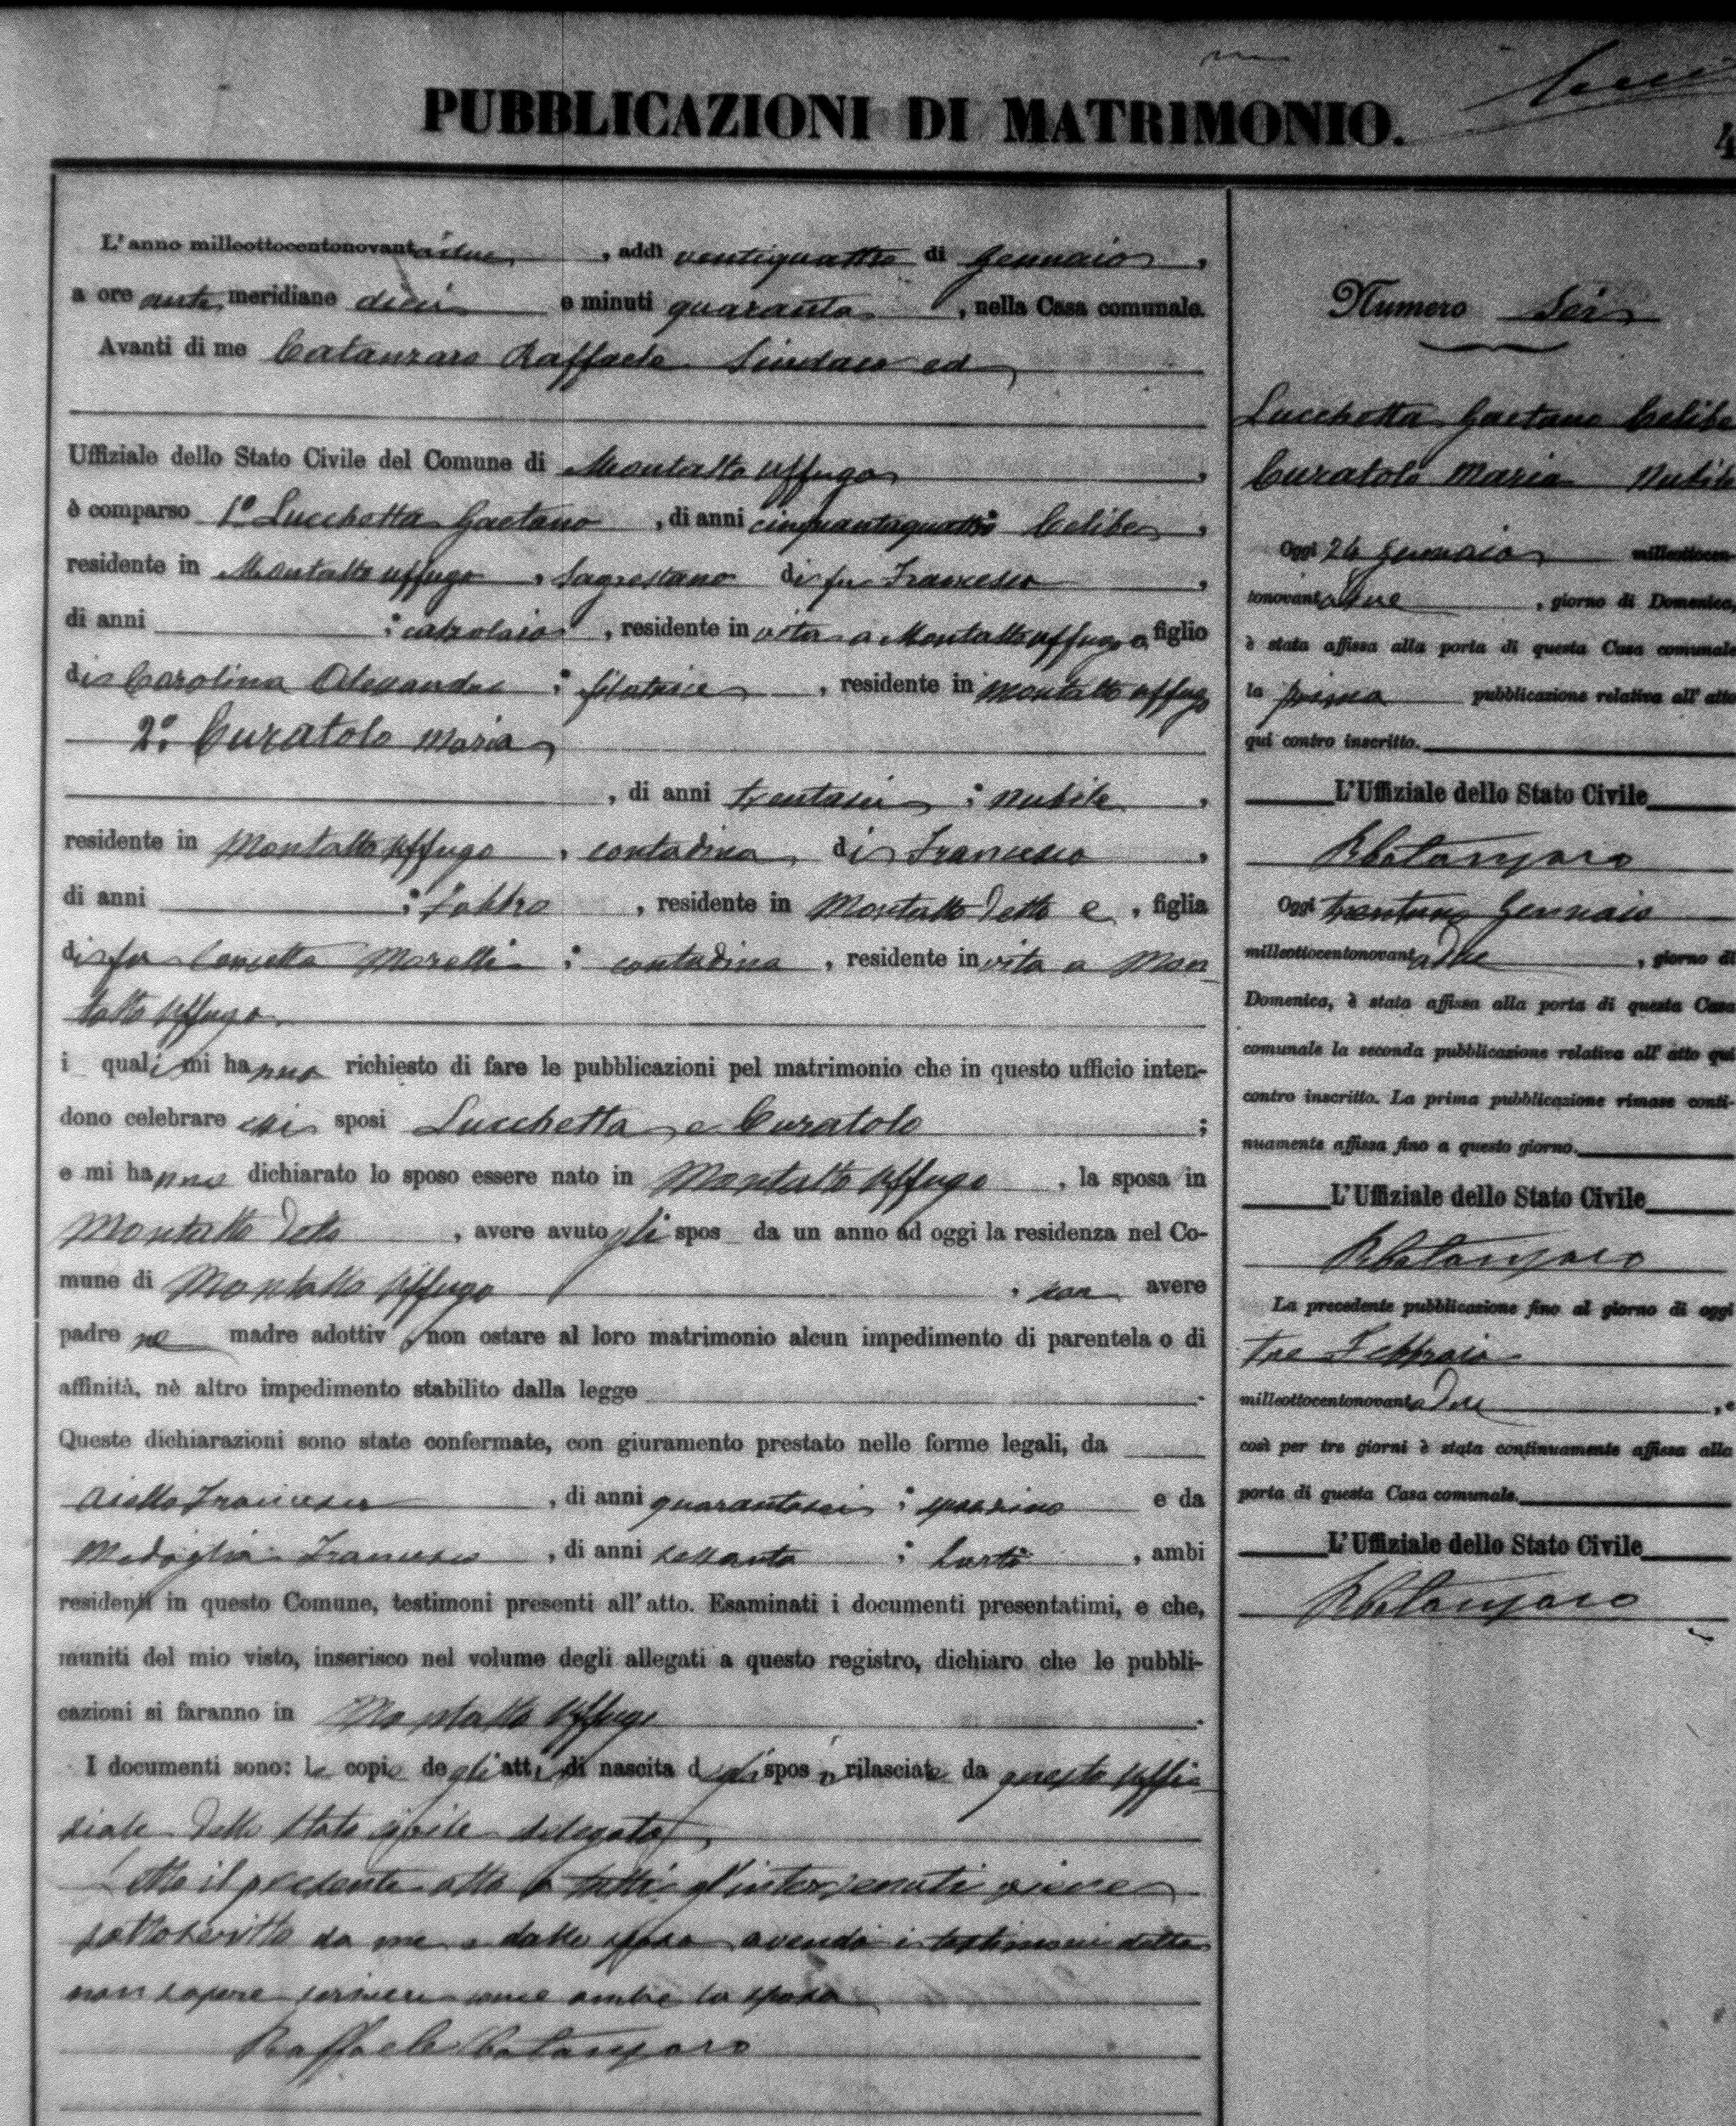 PUBBLICAZIONI DI MATRIMONIO.
4
L'anno milleottocentonovantadue, addì ventiquattro di Gennaio,
a ore antimeridiane dieci e minuti quaranta, nella Casa comunale.
Avanti di me Catanzaro Raffaele Sindaco ed
Uffiziale dello Stato Civile del Comune di Montalto Uffugo,
è comparso 1º Lucchetta Gaetano, di anni cinquantaquattro Celibe,
residente in Montalto Uffugo, Sagrestano di fu Francesco,
di anni ; calzolaio, residente in vita a Montalto Uffugo e figlio
di Carolina Alexandra; filatrice, residente in Montalto Uffugo
2º. Curatolo Maria
, di anni trentasei; nubile,
residente in Montalto Uffugo, contadina di Francesco,
di anni ; Fabbro, residente in Montalto detto e, figlia
di fu Concetta Morelli; contadina, residente in vita a Mon
talto Uffugo.
i quali mi hanno richiesto di fare le pubblicazioni pel matrimonio che in questo ufficio inten-
dono celebrare essi sposi Lucchetta e Curatolo;
e mi hanno dichiarato lo sposo essere nato in Montalto Uffugo, la sposa in
Montalto detto, avere avuto gli spos da un anno ad oggi la residenza nel Co-
mune di Montalto Uffugo, non avere
padre ne madre adottiv, non ostare al loro matrimonio alcun impedimento di parentela o di
affinità, nè altro impedimento stabilito dalla legge.
Queste dichiarazioni sono state confermate, con giuramento prestato nelle forme legali, da
Aiello Francesco, di anni quarantasei; e da
Medaglia Francesco, di anni sessanta; Sarto, ambi
residenti in questo Comune, testimoni presenti all'atto. Esaminati i documenti presentatimi, e che,
muniti del mio visto, inserisco nel volume degli allegati a questo registro, dichiaro che le pubbli-
cazioni si faranno in Montalto Uffugo.
I documenti sono: le copie degli atti di nascita degli sposi rilasciate da questo Uffi-
ziale dello Stato Civile delegato.
Letto il presente atto a tutti gl'intervenuti viene
sottoscritto da me e dallo sposo avendo i testimoni detto
non sapere scrivere come anche la sposa
Raffaele Catanzaro
Numero Sei
Lucchetta Gaetano Celibe
Curatolo Maria Nubile
Oggi 24 Gennaio milleottocen-
tonovantadue, giorno di Domenica
è stata affissa alla porta di questa Casa comunale
la prima pubblicazione relativa all'atto
qui contro inscritto.
L'Uffiziale dello Stato Civile
RCatanzaro
Oggi trentuno Gennaio
milleottocentonovantadue, giorno di
Domenica, è stata affissa alla porta di questa Casa
comunale la seconda pubblicazione relativa all'atto qui
contro inscritto. La prima pubblicazione rimase conti-
nuamente affissa fino a questo giorno.
L'Uffiziale dello Stato Civile
RCatanzaro
La precedente pubblicazione fino al giorno di oggi
tre Febbraio
milleottocentonovantadue, e
così per tre giorni è stata continuamente affissa alla
porta di questa Casa comunale.
L'Uffiziale dello Stato Civile
RCatanzaro